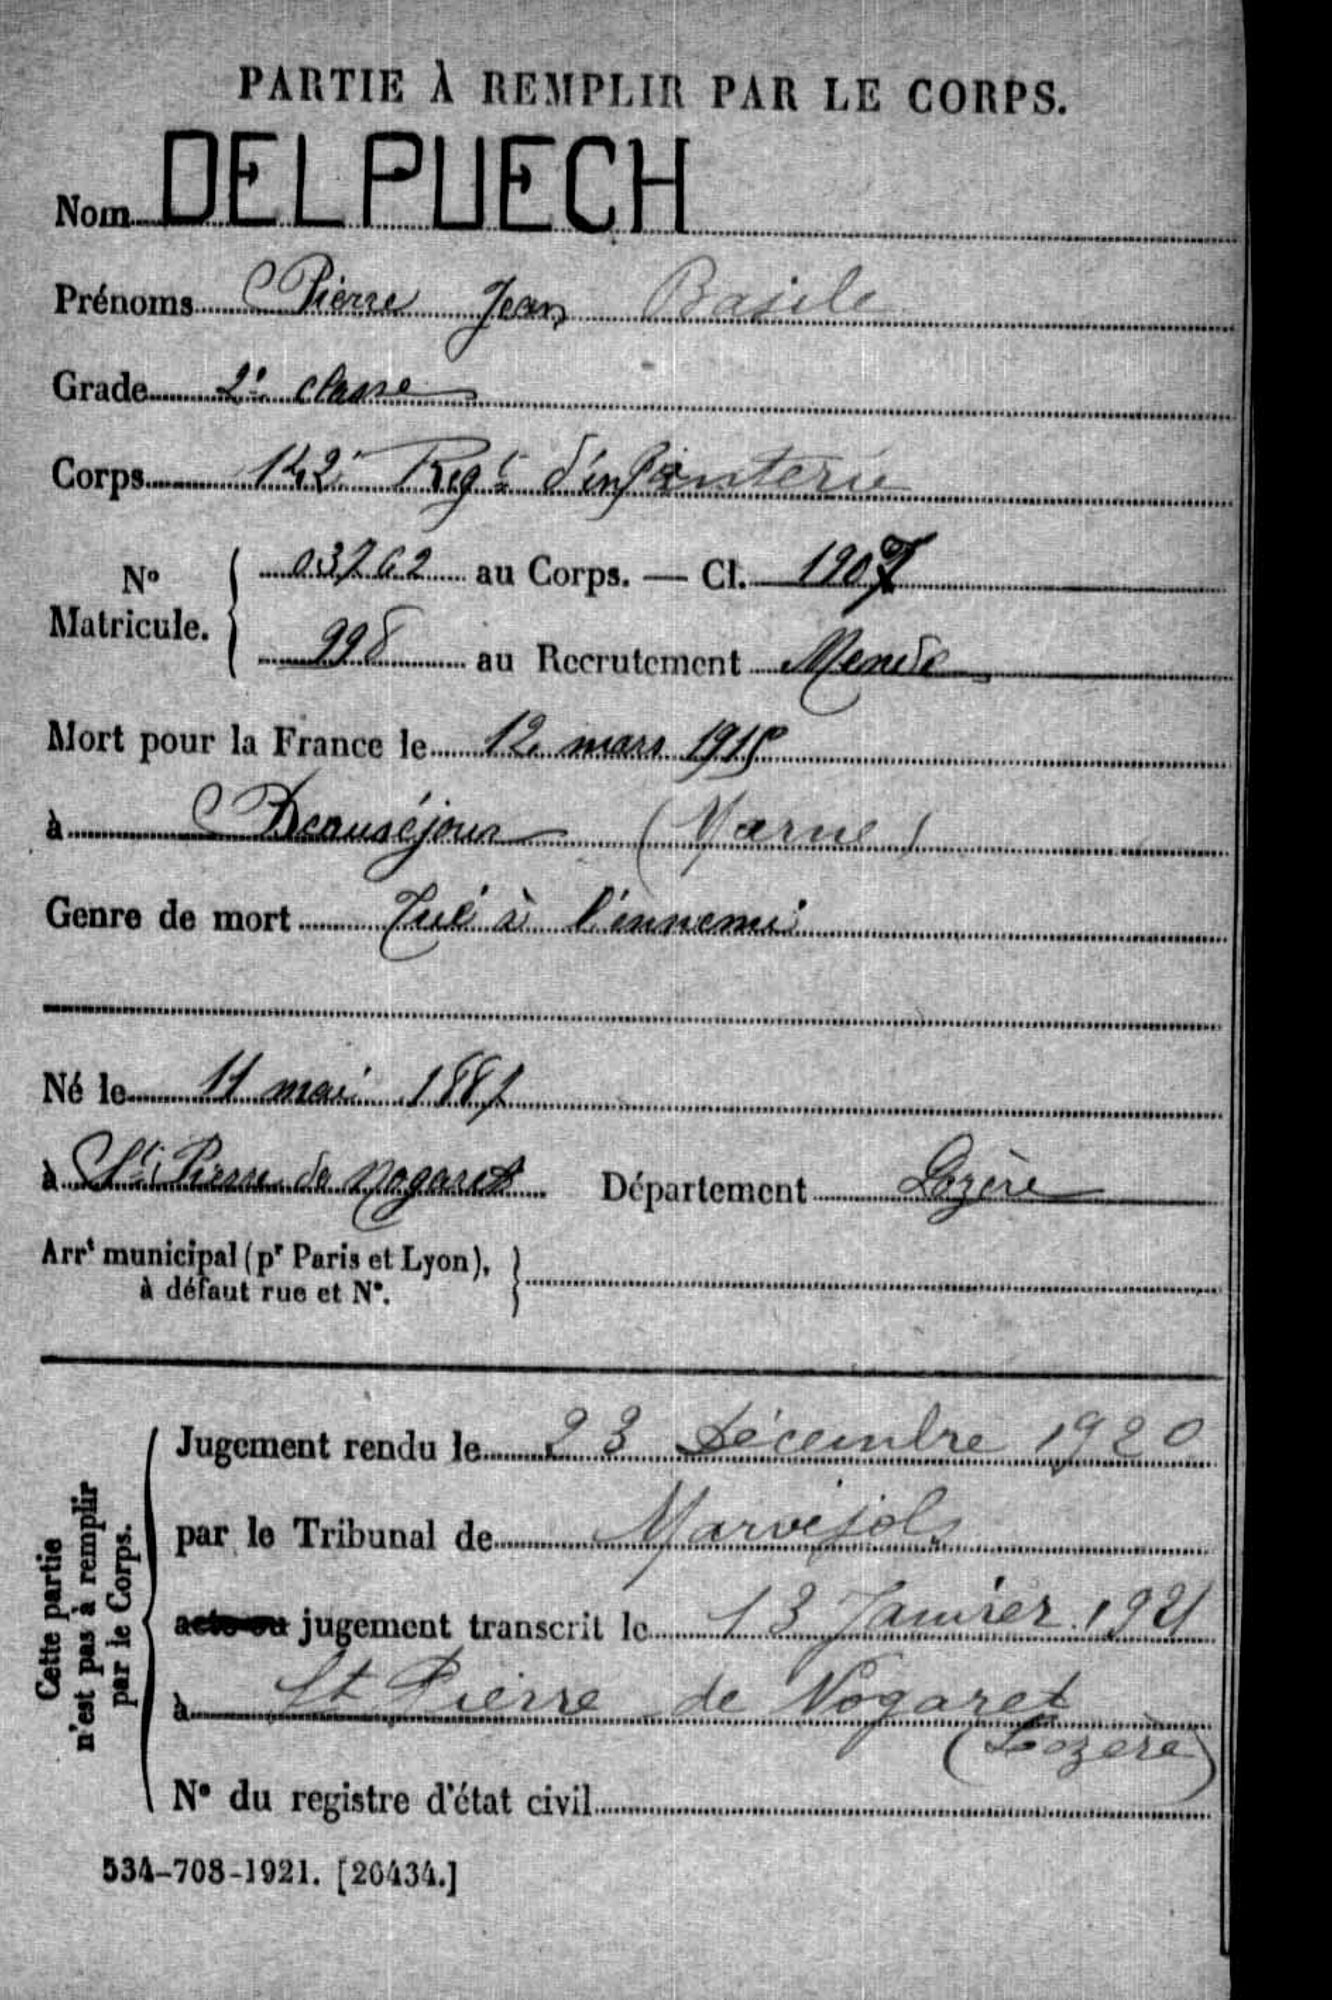 PARTIE À REMPLIR PAR LE CORPS.
Nom DELPUECH
Prénoms Pierre Jean Basile
Grade 2e classe
Corps 142e Regt d'infanterie
No Matricule. 03762 au Corps. — Cl. 1907
998 au Recrutement Mende
Mort pour la France le 12 mars 1915
à Beauséjour (Marne)
Genre de mort Tué à l'ennemi
Né le 11 mai 1887
à St Pierre de Nogaret Département Lozère
Arrt municipal (pr Paris et Lyon),
à défaut rue et No.
Cette partie
n'est pas à remplir
par le Corps.
Jugement rendu le 23 Décembre 1920
par le Tribunal de Marvejols
acte ou jugement transcrit le 13 Janvier 1921
à St Pierre de Nogaret
(Lozère)
No du registre d'état civil
534-708-1921. [26434.]